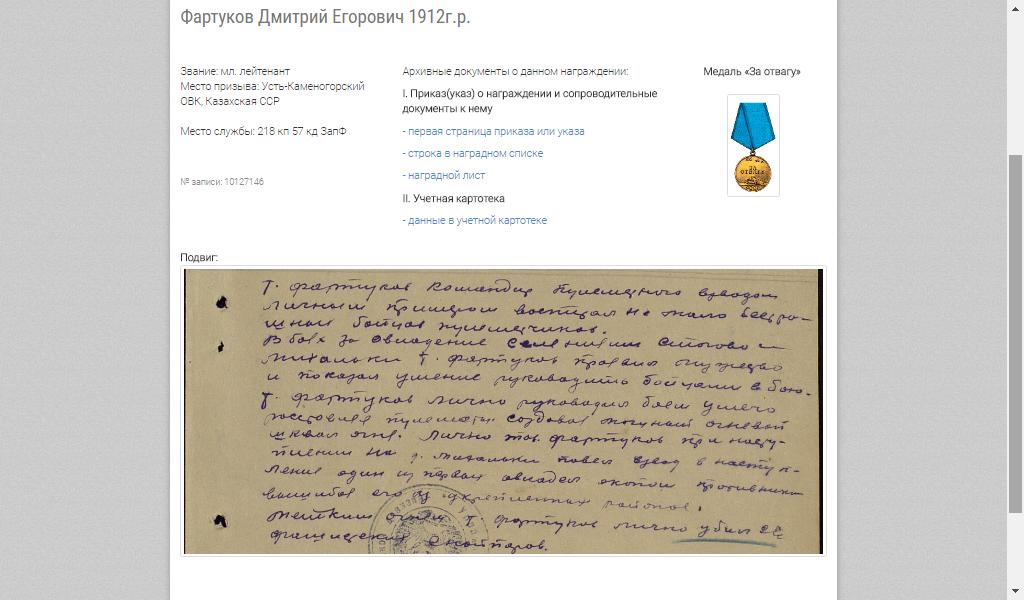 Фартуков Дмитрий Егорович 1912г.р.
Звание: мл. лейтенант
Место призыва: Усть-Каменогорский
ОВК, Казахская ССР
Место службы: 218 кп 57 кд ЗапФ
№ записи: 10127146
Архивные документы о данном награждении:
I. Приказ(указ) о награждении и сопроводительные
документы к нему
- первая страница приказа или указа
- строка в наградном списке
- наградной лист
II. Учетная картотека
- данные в учетной картотеке
Медаль «За отвагу»
Подвиг:
Т. Фартуков командир пулеметного взвода
личным примером воспитал не мало бесстра-
шных бойцов пулеметчиков.
В боях за овладение селениями и
Михальки т. Фартуков проявил мужество
и показал умение руководить бойцами в бою.
Т. Фартуков лично руководил боем умело
расставляя пулеметы создавал мощный огневой
шквал огня. Лично тов. Фартуков при насту-
плении на д. Михальки повел взвод в наступ-
ление один из первых овладел окопом противника
вышибая его из укрепленных районов.
Метким огнем т. Фартуков лично убил 22
фашистских снайперов.